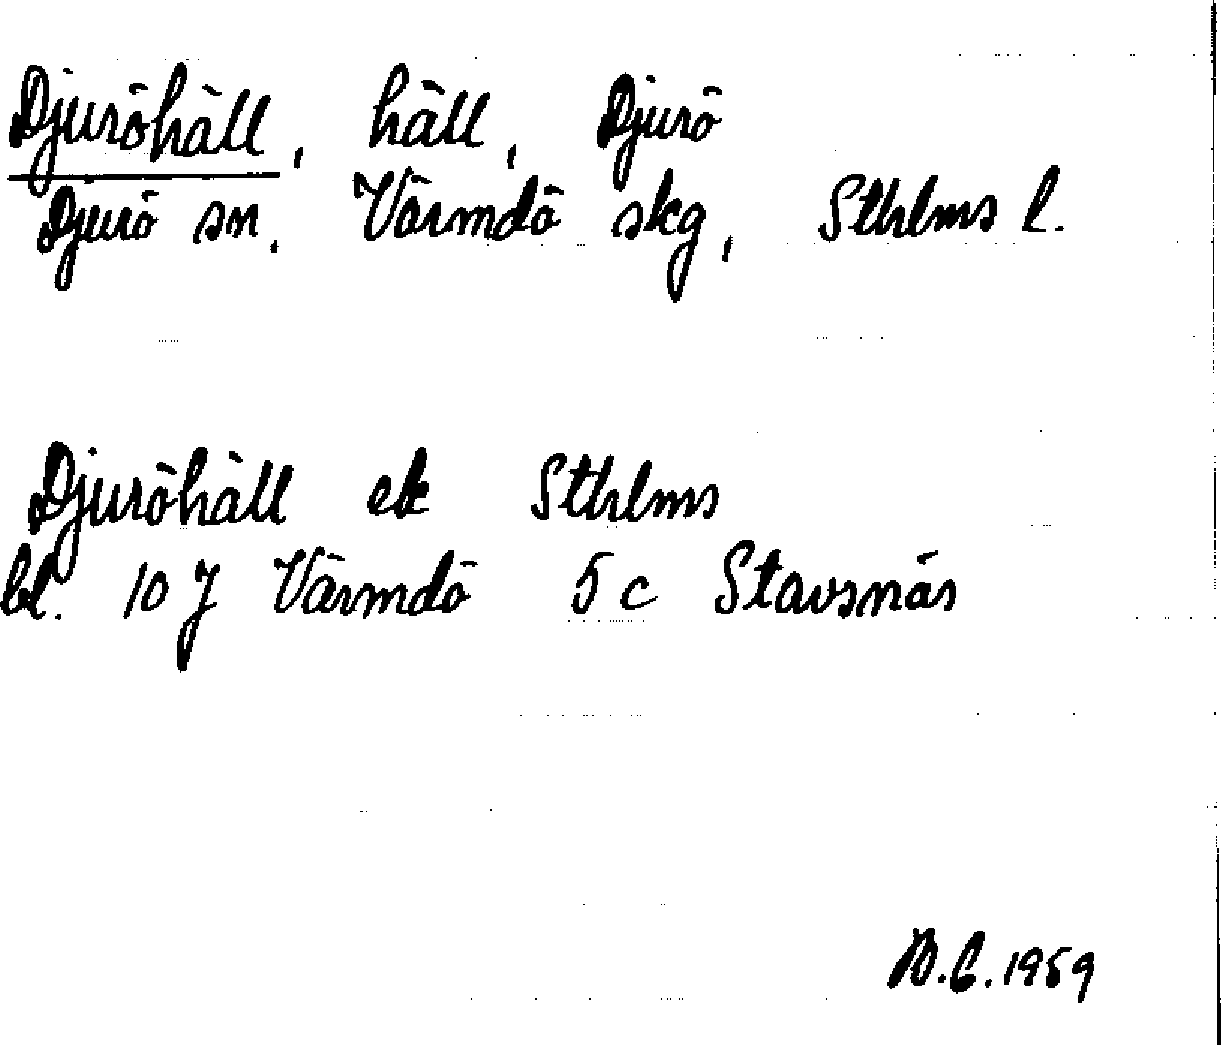 Djuröhäll, häll, Djurö
Djurö sn, Värmdö skg, Sthlms l.
Djuröhäll ek Sthlms
bl. 10 J Värmdö 5 c Stavsnäs
B.C. 1959